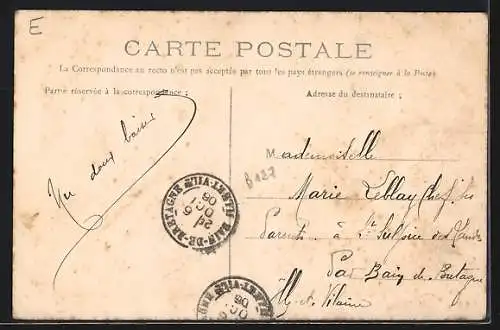 E
CARTE POSTALE
La Correspondance au recto n'est pas acceptée par tous les pays étrangers (se renseigner à la Poste)
Partie réservée à la correspondance :
Adresse du destinataire :
Un doux baiser
B127
Mademoiselle
Marie Leblay chez ses
Parents à St Sulpice des Landes
Par Bain de Bretagne
Ille et Vilaine
BAIN-DE-BRETAGNE ILLE-ET-VILNE
OCT
06
BRETAGNE ILLE-ET-VILNE
OCT
06